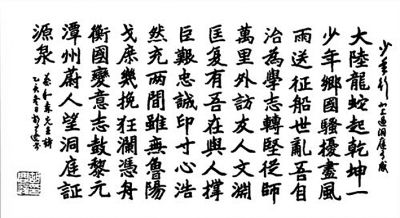 少年行 北上過洞庭有感
大陸龍蛇起乾坤一
少年鄉國騷擾盡風
雨送征船世亂吾自
治為學志轉堅從師
萬里外訪友人文淵
匡复有吾在與人撐
巨艱忠誠印寸心浩
然充兩間雖無魯陽
戈庶幾挽狂瀾憑舟
衡國變意志鼓黎元
潭州蔚人望洞庭証
源泉
蔡和森先生詩
乙亥冬日